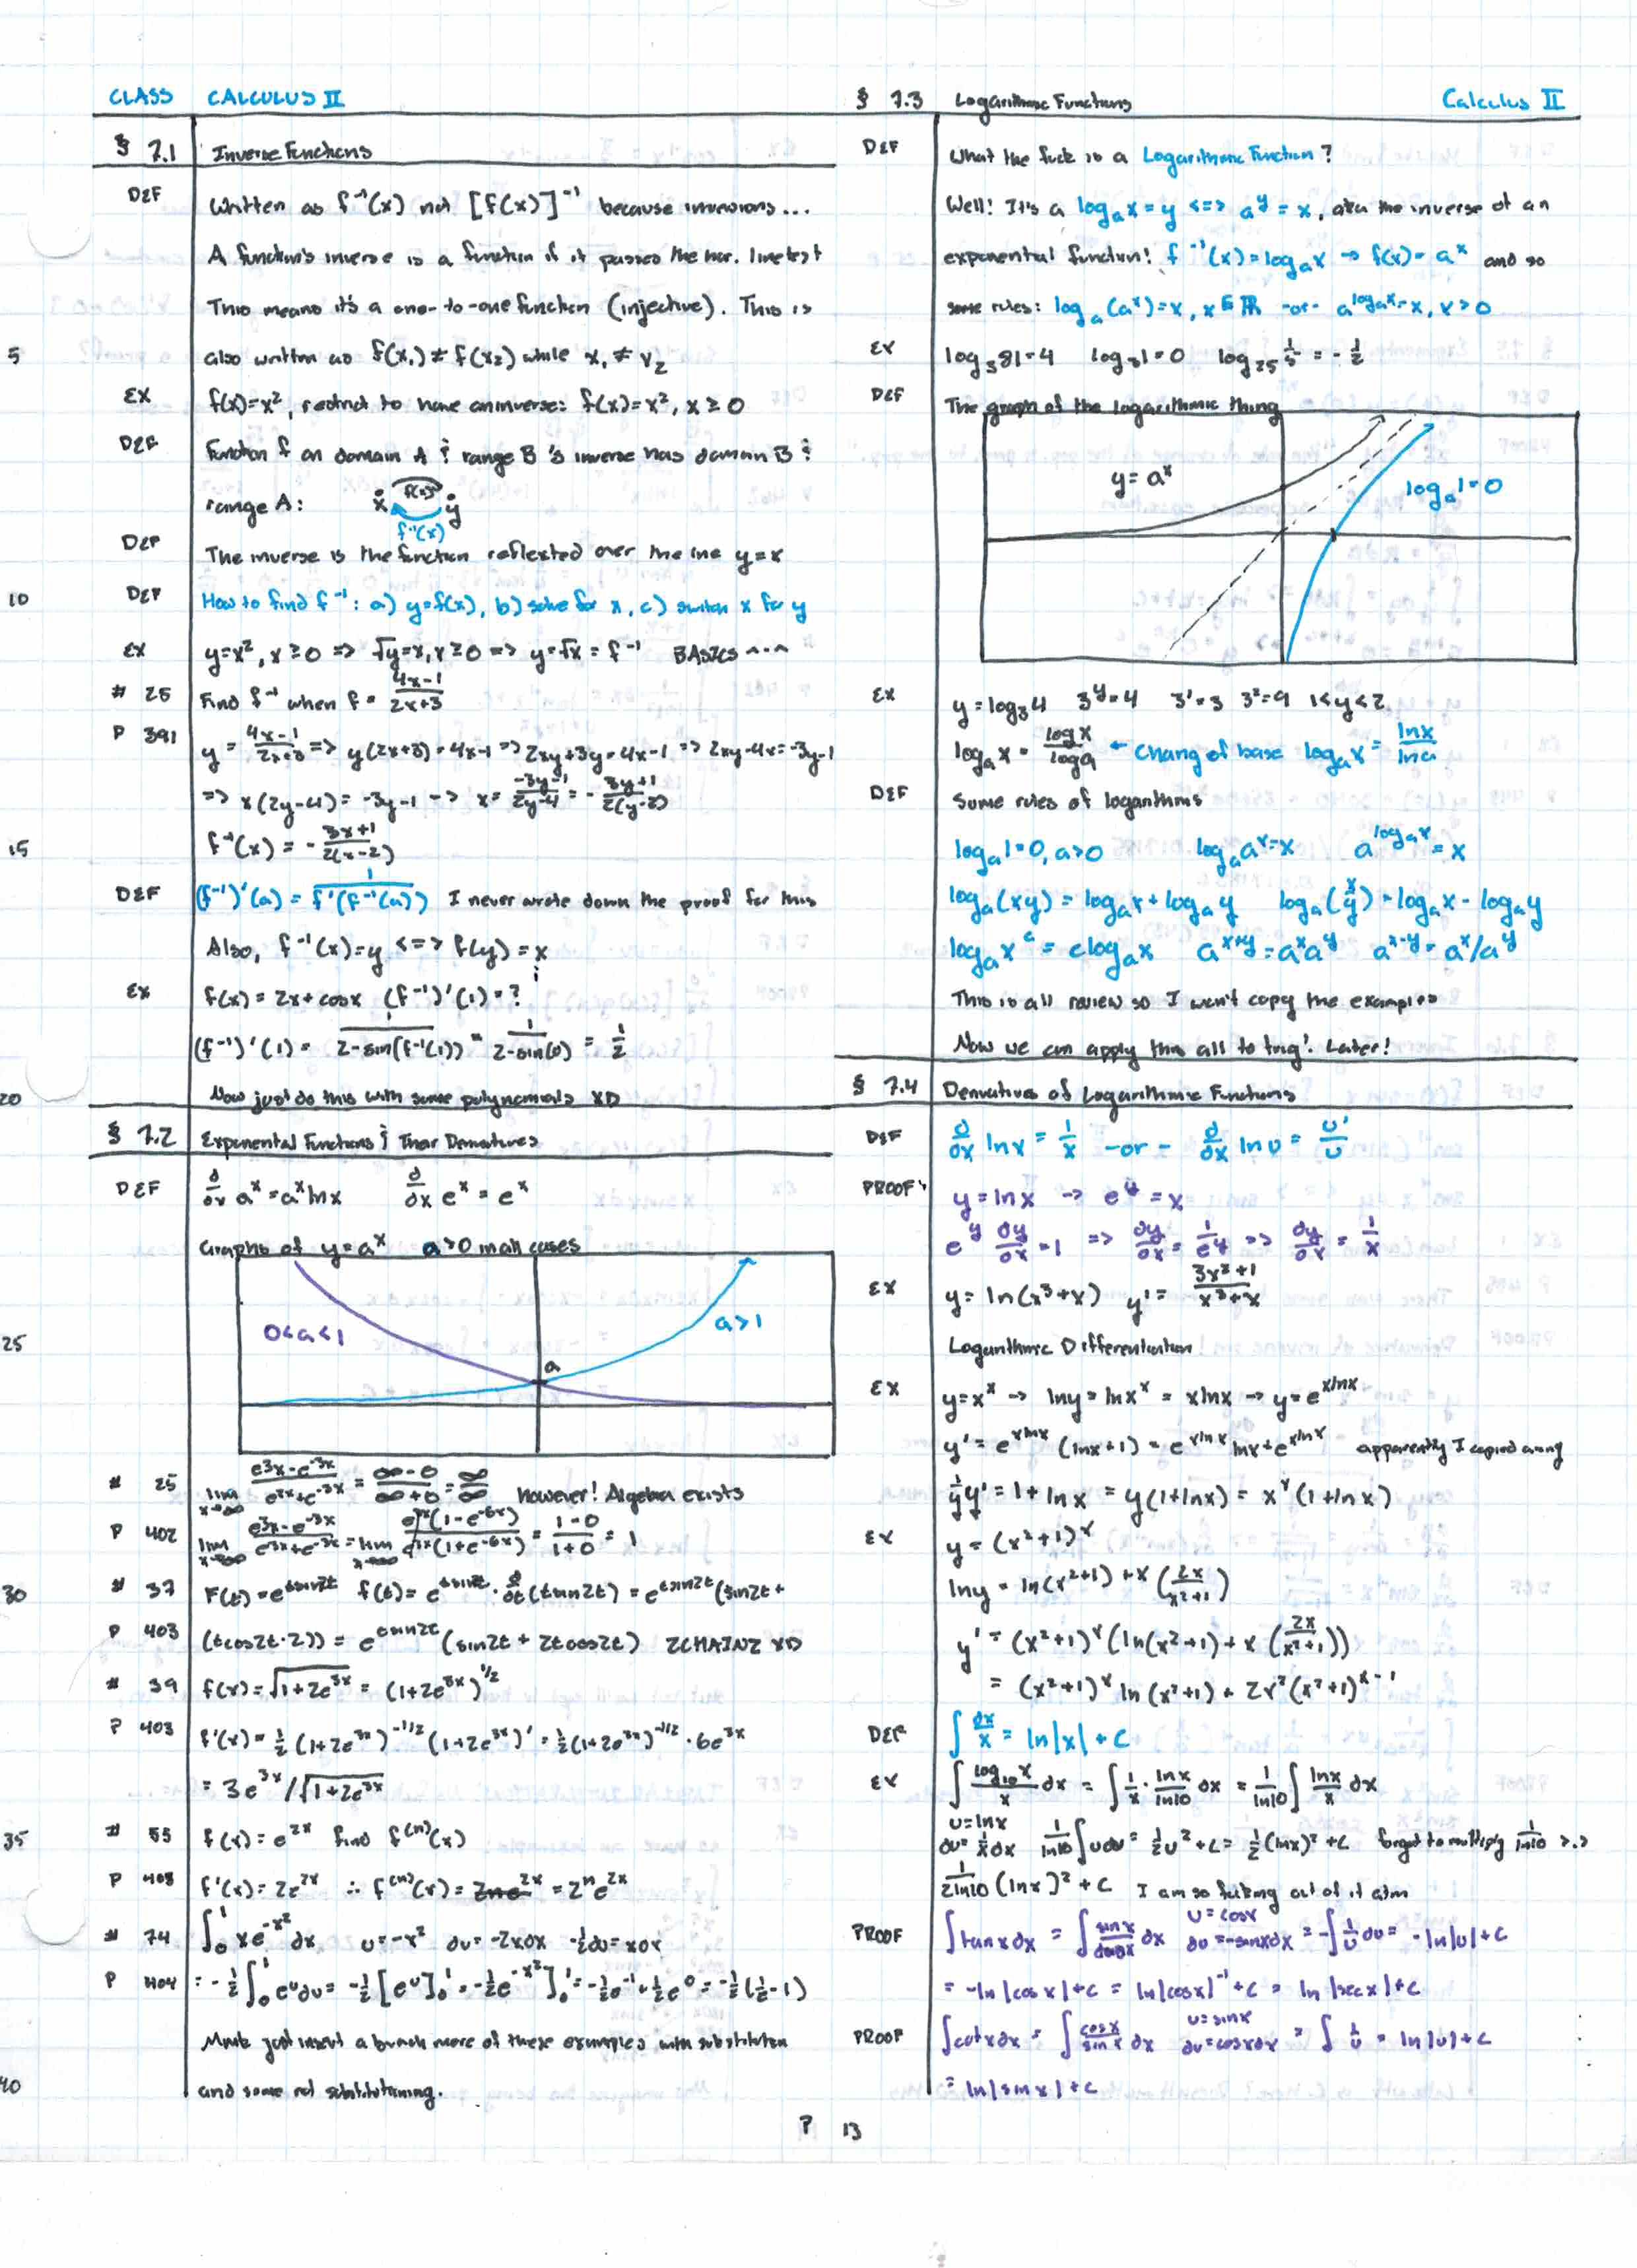 CLASS CALCULUS II
§ 7.1 Inverse Functions
DEF Written as f⁻¹(x) not [f(x)]⁻¹ because inversions...
A function's inverse is a function if it passes the hor. line test
This means it's a one-to-one function (injective). This is
5 also written as f(x₁) ≠ f(x₂) while x₁ ≠ x₂
EX f(x)=x², restrict to have an inverse: f(x)=x², x ≥ 0
DEF Function f on domain A & range B 's inverse has domain B &
range A: x f(x) y
f⁻¹(x)
DEF The inverse is the function reflected over the line y=x
10 DEF How to find f⁻¹: a) y=f(x), b) solve for x, c) switch x for y
EX y=x², x≥0 => √y=x, x≥0 => y=√x = f⁻¹ BASICS
# 25 Find f⁻¹ when f = (4x-1)/(2x+3)
P 391 y = (4x-1)/(2x+3) => y(2x+3)=4x-1 => 2xy+3y=4x-1 => 2xy-4x=-3y-1
=> x(2y-4)=-3y-1 -> x= (-3y-1)/(2y-4) = -(3y+1)/(2(y-2))
15 f⁻¹(x) = -(3x+1)/(2(x-2))
DEF (f⁻¹)'(a) = 1/(f'(f⁻¹(a))) I never wrote down the proof for this
Also, f⁻¹(x)=y <=> f(y)=x
EX f(x) = 2x+cosx (f⁻¹)'(1)=?
(f⁻¹)'(1) = 1/(2-sin(f⁻¹(1))) = 1/(2-sin(0)) = 1/2
20 Now just do this with some polynomials XD
§ 7.2 Exponential Functions & Their Derivatives
DEF d/dx aˣ = aˣlnx d/dx eˣ = eˣ
Graphs of y=aˣ a>0 in all cases
25 0<a<1 a>1
a
# 25 lim x→∞ (e^3x-e^-3x)/(e^3x+e^-3x) = (∞-0)/(∞+0) = ∞/∞ However! Algebra exists
P 402 lim x→∞ (e^3x-e^-3x)/(e^3x+e^-3x) = lim x→∞ e^3x(1-e^-6x)/e^3x(1+e^-6x) = (1-0)/(1+0) = 1
30 # 37 F(t)=e^tsin2t f(t)=e^tsin2t · d/dt(tsin2t) = e^tsin2t(sin2t+
P 403 (tcos2t·2)) = e^tsin2t(sin2t + 2tcos2t) 2CHAINZ XD
# 39 f(x)=√(1+2e^3x) = (1+2e^3x)^1/2
P 403 f'(x)=½(1+2e^3x)^-1/2(1+2e^3x)' = ½(1+2e^3x)^-1/2 · 6e^3x
= 3e^3x/√(1+2e^3x)
35 # 55 f(x)=e^2x find f⁽ⁿ⁾(x)
P 403 f'(x)=2e^2x ∴ f⁽ⁿ⁾(x)= 2ne^2x = 2ⁿe^2x
# 74 ∫₀¹ xe^-x² dx u=-x² du=-2xdx -½du=xdx
P 404 = -½∫₀¹ eᵘdu = -½[eᵘ]₀¹ = -½e^-x²]₀¹ = -½e⁻¹+½e⁰ = -½(½-1)
just insert a bunch more of these examples with substitution
40 and some not substitutioning.
§ 7.3 Logarithmic Functions Calculus II
DEF What the fuck is a Logarithmic Function?
Well! It's a logₐx=y <=> aʸ=x, aka the inverse of an
exponential function! f⁻¹(x)=logₐx → f(x)=aˣ and so
some rules: logₐ(aˣ)=x, x∈ℝ -or- a^logₐx=x, x>0
EX log₃81=4 log₃1=0 log₂₅ 1/5 = -1/2
DEF The graph of the logarithmic thing
y=aˣ logₐ1=0
EX y=log₃4 3ʸ=4 3¹=3 3²=9 1<y<2
logₐx = logx/loga ← change of base logₐx = lnx/lna
DEF Some rules of logarithms
logₐ1=0, a>0 logₐaˣ=x a^logₐx=x
logₐ(xy) = logₐx+logₐy logₐ(x/y)=logₐx-logₐy
logₐxᶜ = clogₐx aˣ⁺ʸ=aˣaʸ aˣ⁻ʸ=aˣ/aʸ
This is all review so I won't copy the examples
Now we can apply this all to trig! Later!
§ 7.4 Derivatives of Logarithmic Functions
DEF d/dx lnx = 1/x -or- d/dx lnu = u'/u
PROOF y=lnx → eʸ=x
eʸ dy/dx=1 => dy/dx=1/eʸ => dy/dx=1/x
EX y=ln(x³+x) y'=(3x²+1)/(x³+x)
Logarithmic Differentiation!
EX y=xˣ → lny=lnxˣ = xlnx → y=e^xlnx
y'=e^xlnx(lnx+1)=e^xlnx lnx+e^xlnx apparently I copied wrong
1/y y'=1+lnx = y(1+lnx) = xˣ(1+lnx)
EX y=(x²+1)ˣ
lny=ln(x²+1)+x(2x/(x²+1))
y'=(x²+1)ˣ(ln(x²+1)+x(2x/(x²+1)))
= (x²+1)ˣ ln(x²+1)+2x²(x²+1)ˣ⁻¹
DEF ∫dx/x = ln|x|+C
EX ∫ log₁₀x/x dx = ∫ 1/x · lnx/ln10 dx = 1/ln10 ∫ lnx/x dx
u=lnx
du=1/x dx 1/ln10 ∫udu = ½u²+C = ½(lnx)²+C forgot to multiply 1/ln10 >.>
1/2ln10 (lnx)²+C I am so fucking out of it atm
PROOF ∫tanxdx = ∫ sinx/cosx dx u=cosx du=-sinxdx = -∫1/u du = -ln|u|+C
= -ln|cosx|+C = ln|cosx|⁻¹+C = ln|secx|+C
PROOF ∫cotxdx = ∫ cosx/sinx dx u=sinx du=cosxdx = ∫ 1/u = ln|u|+C
= ln|sinx|+C
P 13